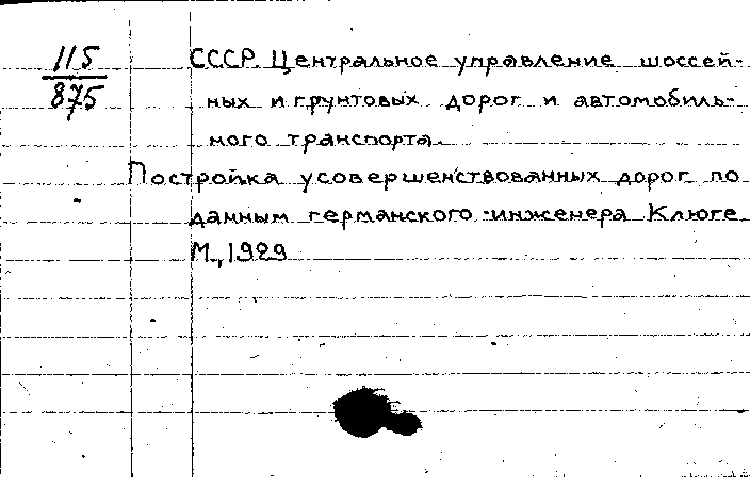 115
875
СССР. Центральное управление шоссей-
ных и грунтовых дорог и автомобиль-
ного транспорта.
Постройка усовершенствованных дорог по
данным германского инженера Клюге
М., 1929